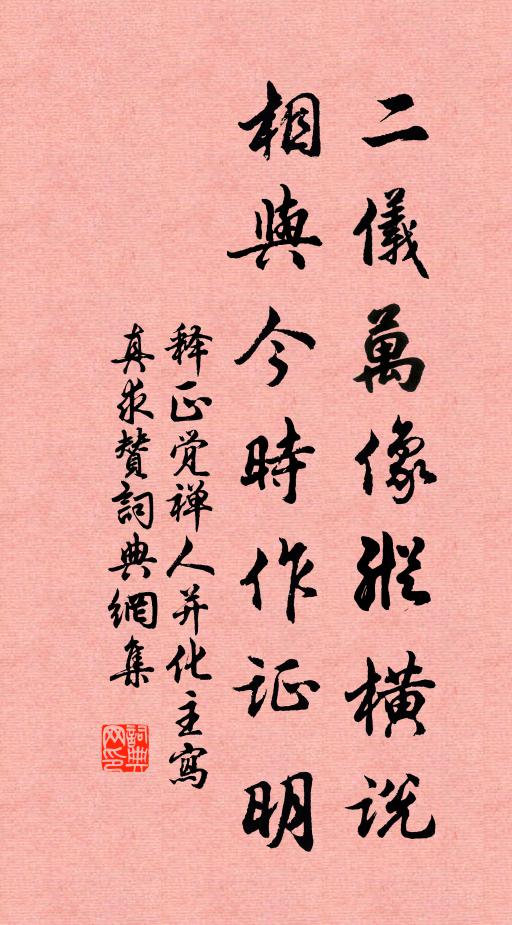 二儀萬像縱橫説
相與今時作証明
释正觉禅人并化主寫
真求賛詞典網集
詞典网印